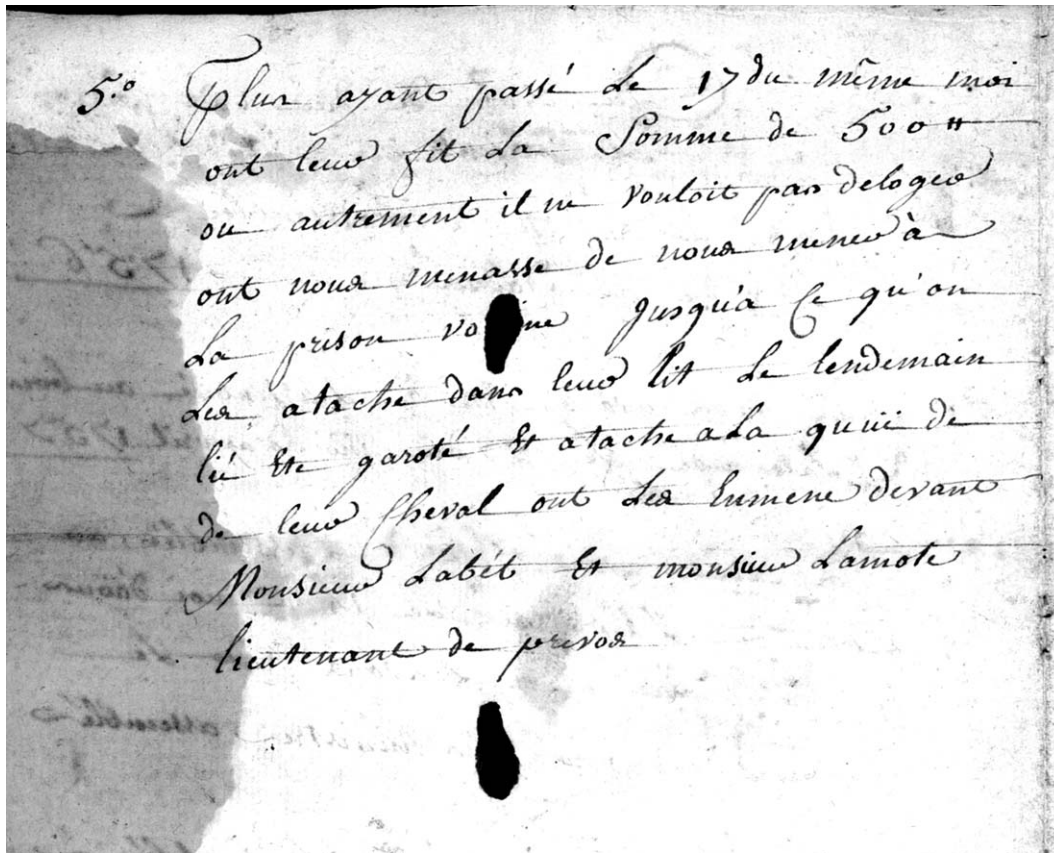 5.o Plus ayant passé Le 17 du même moi
ont leur fit La Somme de 500 ₶
ou autrement il ne vouloit pas deloger
ont nous menasse de nous mener à
La prison vo ine Jusqu'a Ce qu'on
Les atache dans leur lit Le lendemain
lié Ete garoté Et atache a La queüe de
de leur Cheval ont Les Enmene devant
Monsieur Labét Et monsieur Lamote
lieutenant de prevos
1756
assemble